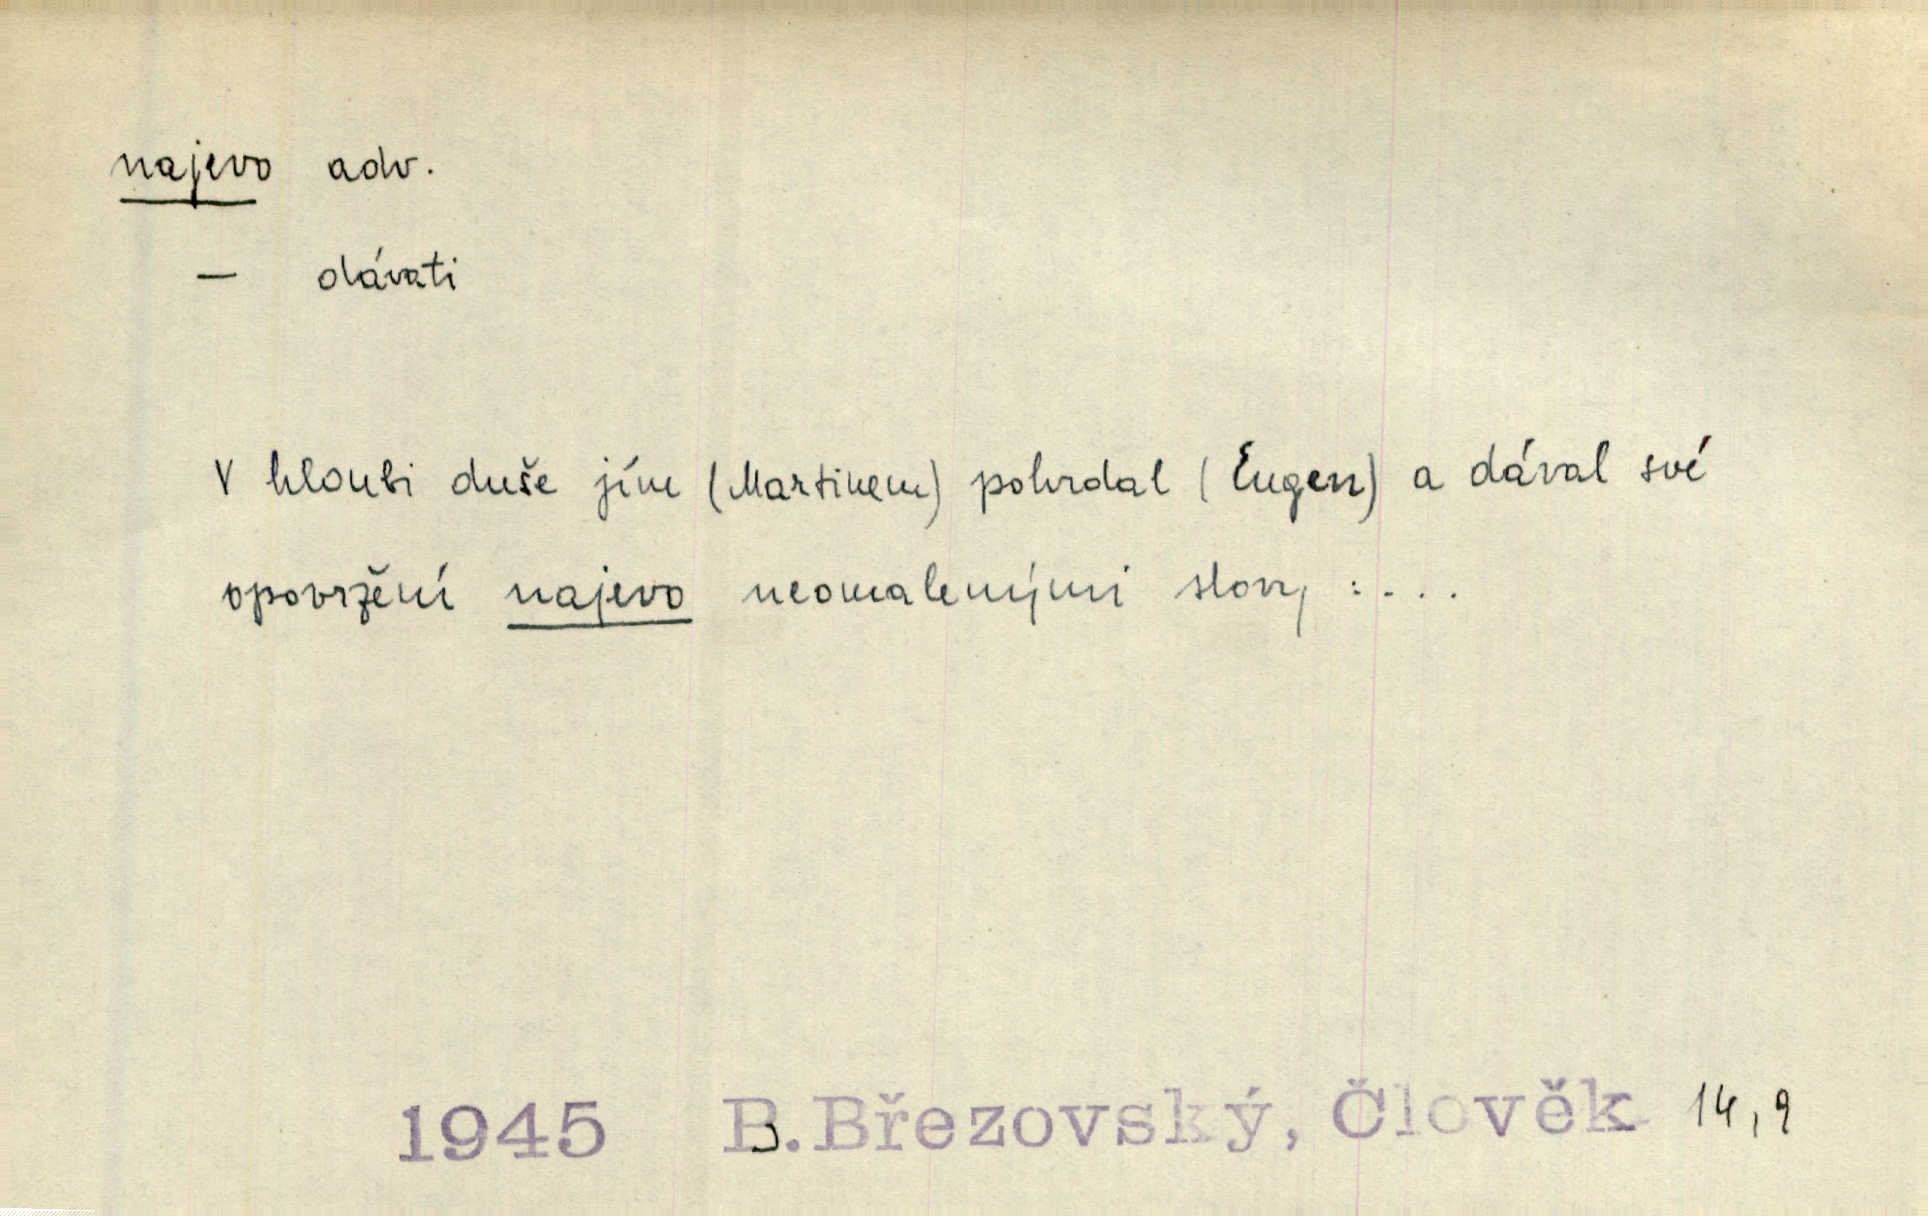 najevo adv.
— dávati
V hloubi duše jím (Martinem) pohrdal (Eugen) a dával své
opovržení najevo neomalenými slovy : . . .
1945 B. Březovský, Člověk 14, 9